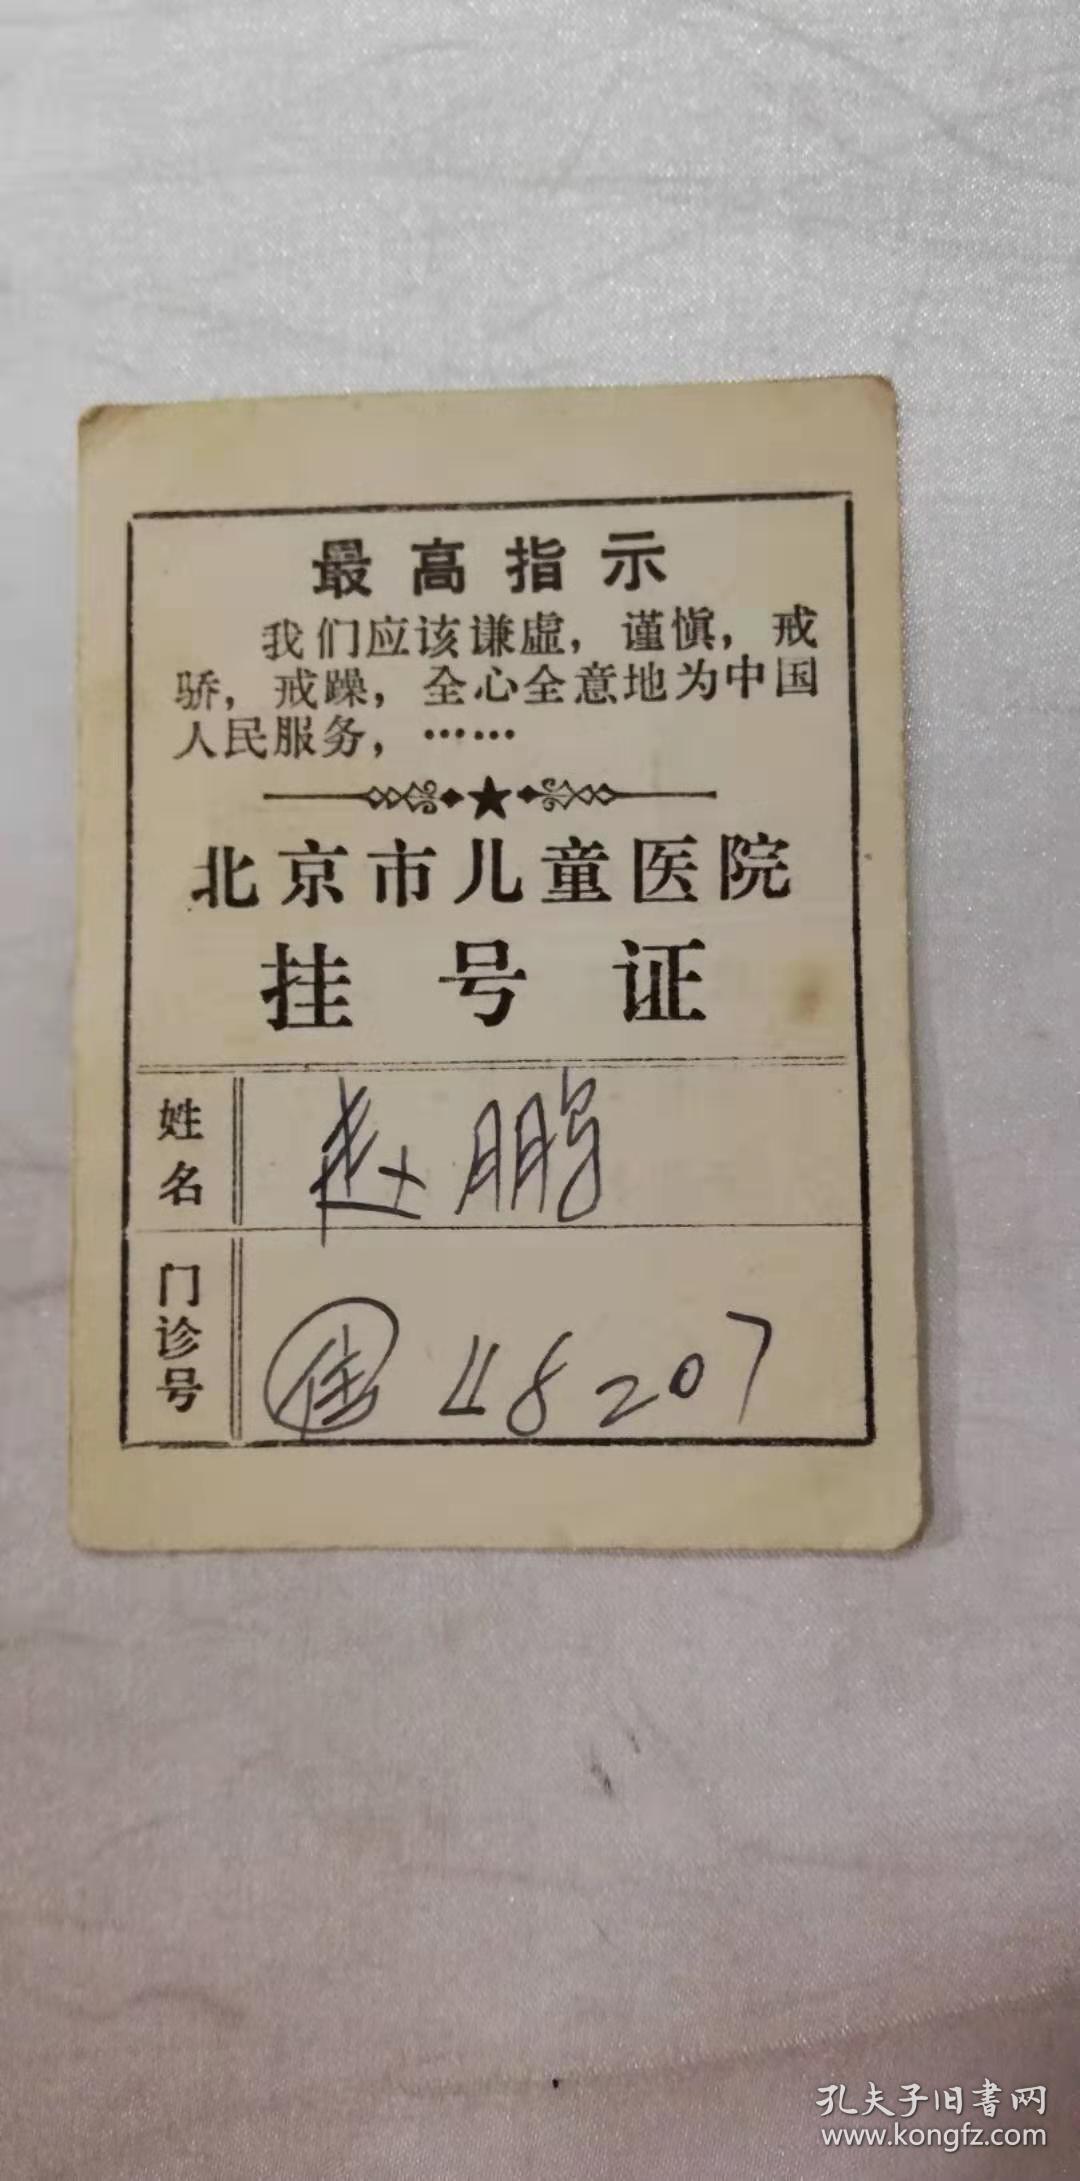 最高指示
我们应该谦虚，谨慎，戒
骄，戒躁，全心全意地为中国
人民服务，……
北京市儿童医院
挂号证
姓名
赵鹏
门诊号
48207
孔夫子旧书网
www.kongfz.com